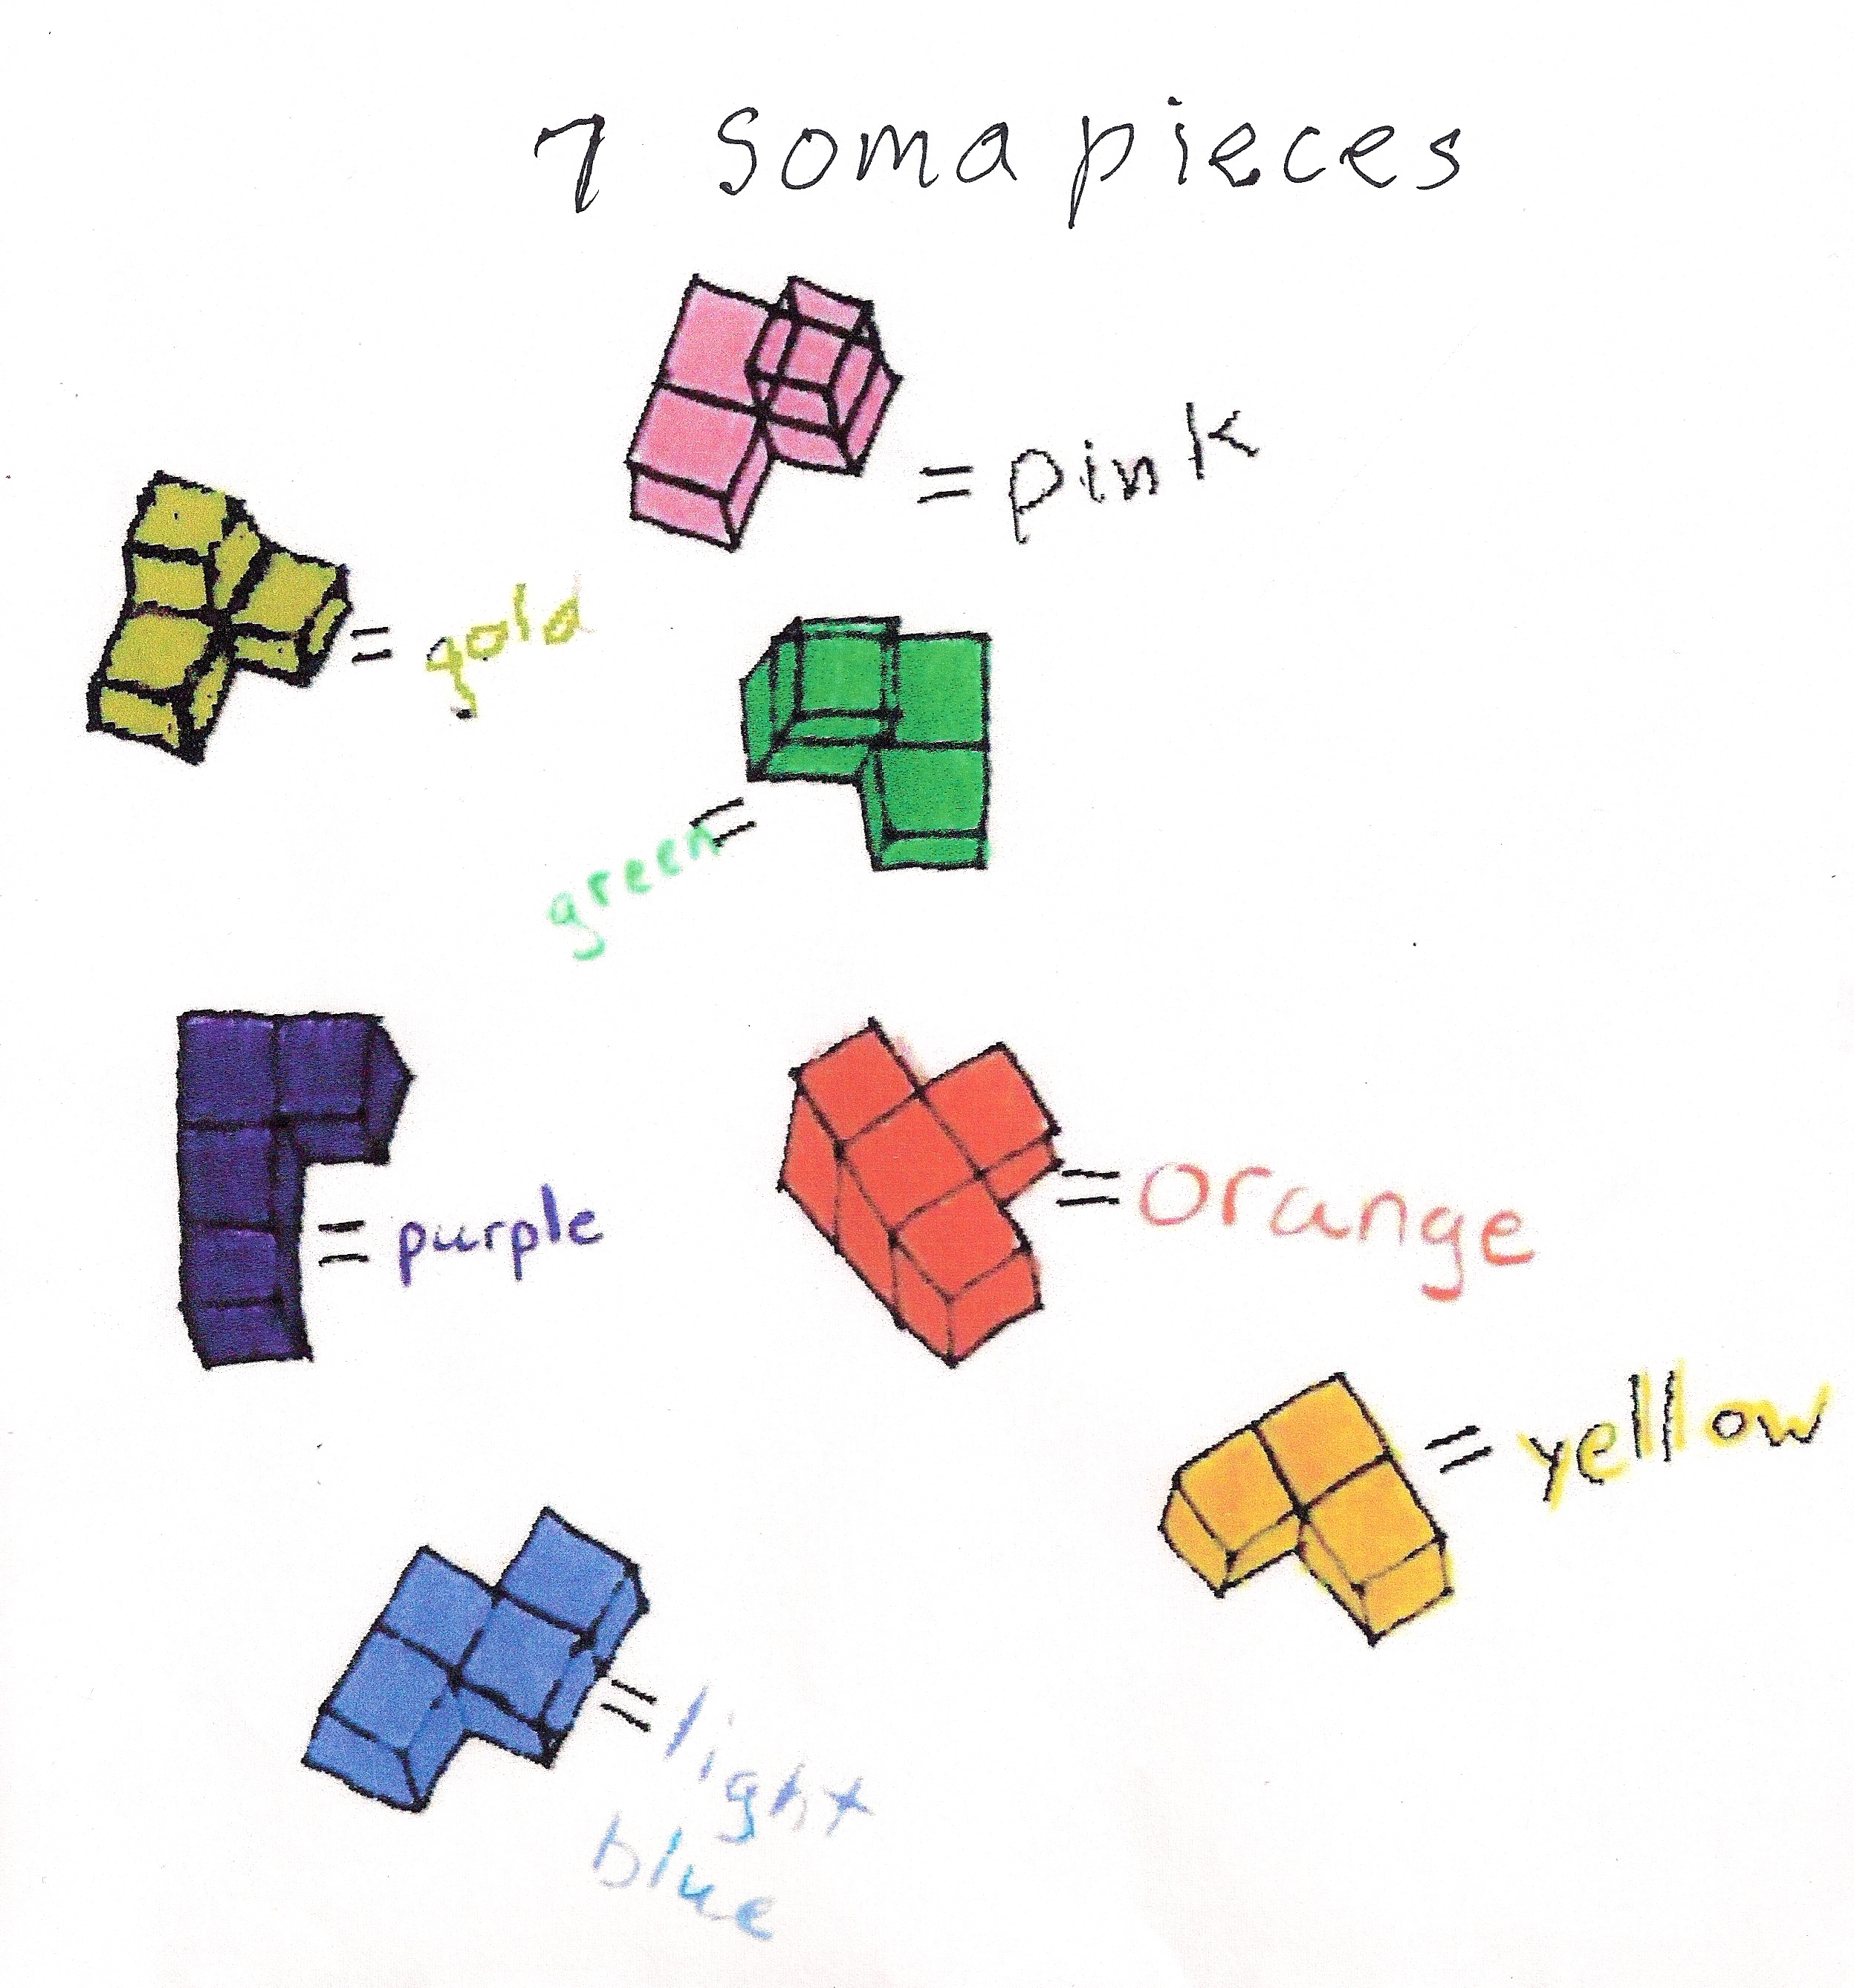 7 Soma pieces
= pink
= gold
green =
= purple
= orange
= yellow
= light
blue